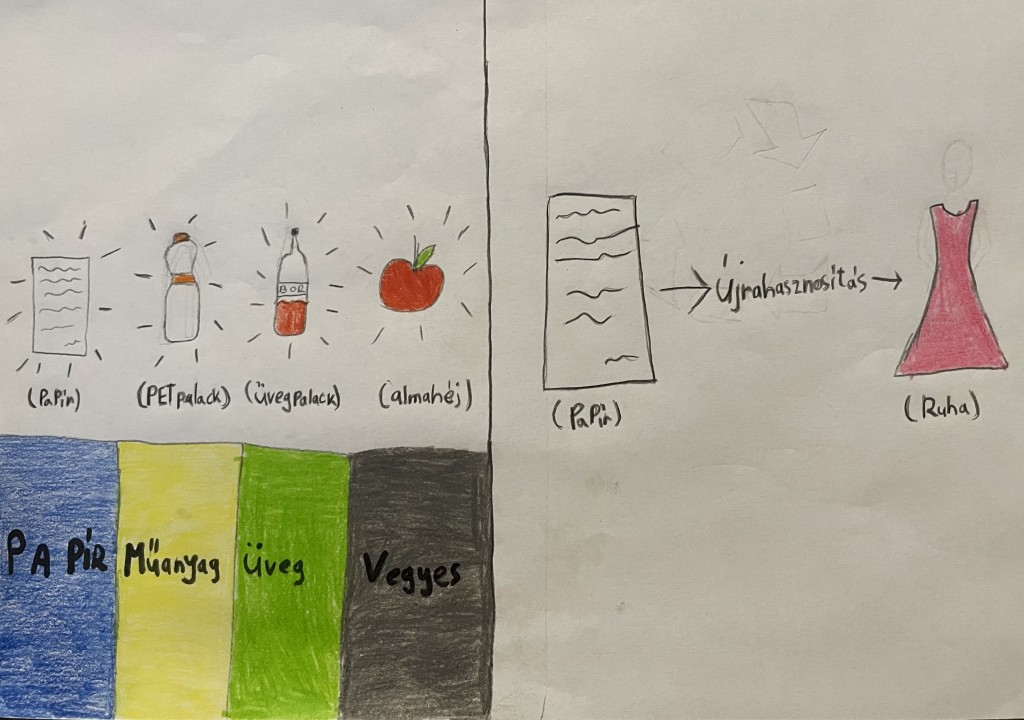 BOR
(Papír) (PET palack) (üvegpalack) (almahéj)
PAPÍR Műanyag Üveg Vegyes
Újrahasznosítás
(Papír) (Ruha)